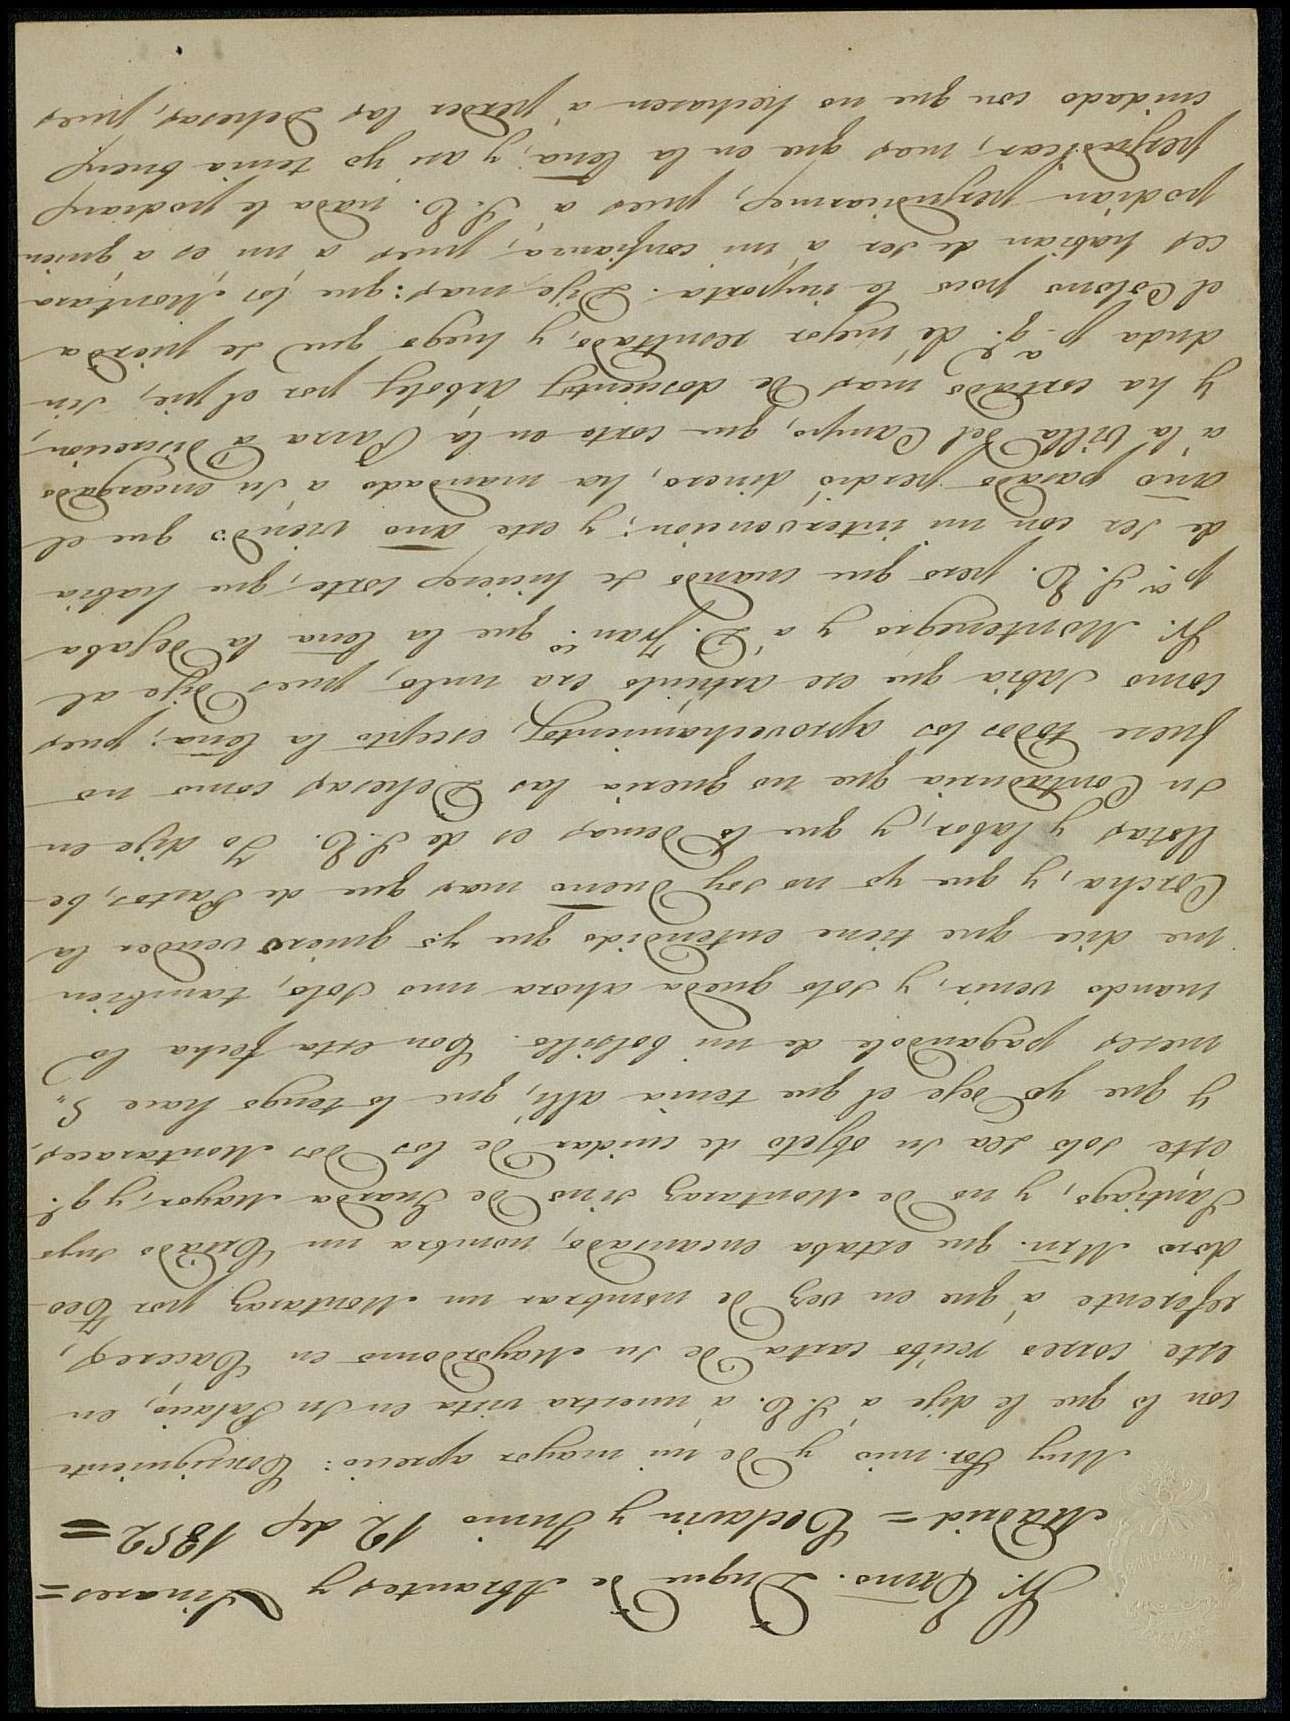 Sr. Exmo. Duque de Abrantes y Linares =
Madrid = Ceclavin y Junio 12 de 1852 =
Muy Sor. mio y de mi mayor aprecio: Consiguiente
con lo que le dije a S.E. á nuestra vista en su Palacio, en
este correo recibo carta de su Mayordomo en Caceres,
referente á que en vez de nombrar un Montaraz por Teo-
doro Mrn. que estaba encausado, nombra un Criado suyo
Santiago, y no de Montaraz sino de Guarda Mayor, y qe.
este solo sea su objeto de cuidar de los dos Montaraces,
y que yo deje el que tenia alli, que lo tengo hace 5,,
meses pagandole de mi bolsillo. Con esta fecha lo
mando venir, y solo queda ahora uno solo, tambien
me dice que tiene entendido que yo quiero vender la
Corcha, y que yo no soy dueño mas que de Pastos, be-
llotas y labor, y que lo demas es de S.E. Yo dije en
su Contaduria que no queria las Dehesas como no
fuese todos los aprovechamientos, escepto la leña; pues
como sabia que ese articulo era nulo, pues dije al
Sr. Montenegro y a D. Franco. que la leña la dejaba
pa. S.E. pero que cuando se hiciese corte, que habia
de ser con mi intervencion; y este año viendo que el
año pasado perdió dinero, ha mandado a su encargado
a la Villa del Campo, que corte en la Parra á discrecion,
y ha cortado mas de doscientos arboles por el pie, sin
duda pa. qe. de mejor resultado, y luego que se pierda
el Colono poco le importa. Dije mas: que los Montara-
ces habian de ser á mi confianza, pues a mi es a quien
podian perjudicarme, pues á S.E. nada le podian
perjudicar, mas que en la leña, y asi yo tenia buen
cuidado con que no hechasen a perder las Dehesas, pues